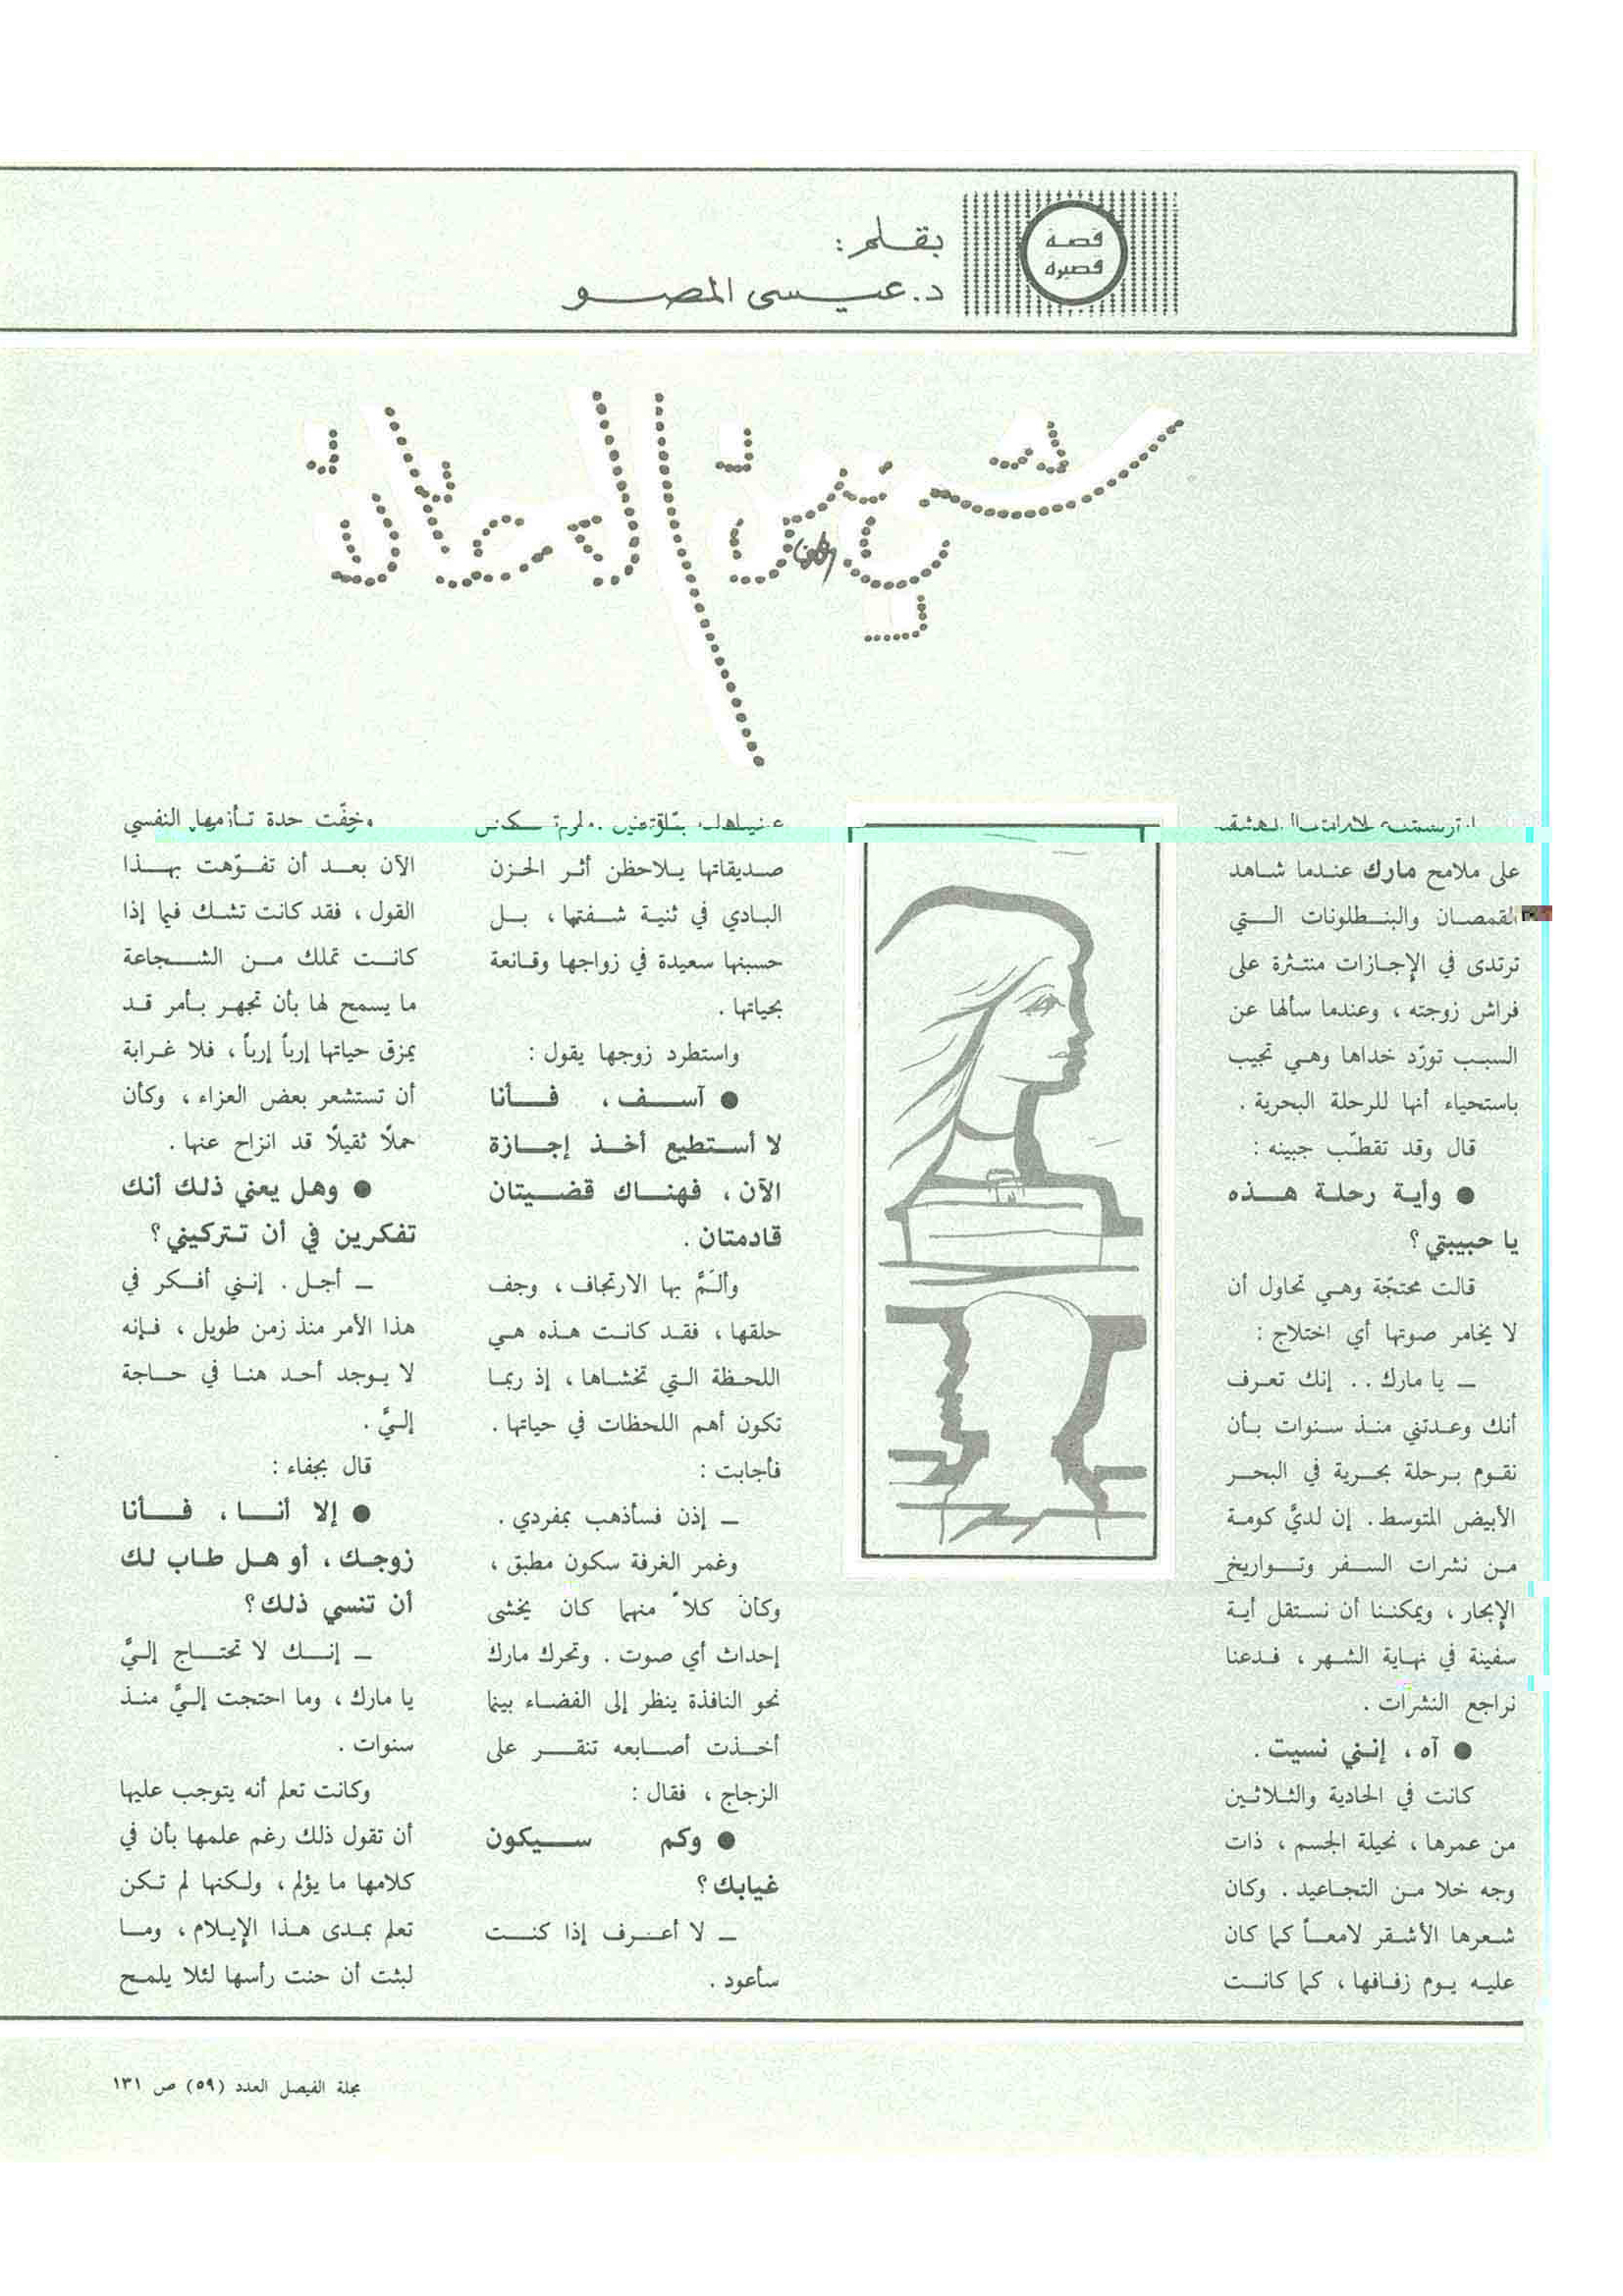 قصة
قصيرة
بقلم:
د. عيسى المصو
ارتسمت
على ملامح مارك عندما شاهد
القمصان والبنطلونات التي
ترتدى في الإجازات منتثرة على
فراش زوجته ، وعندما سألها عن
السبب تورّد خداها وهي تجيب
باستحياء أنها للرحلة البحرية .
قال وقد تقطّب جبينه :
● وأية رحلة هذه
يا حبيبتي ؟
قالت محتجّة وهي تحاول أن
لا يخامر صوتها أي اختلاج :
ـ يا مارك . . إنك تعرف
أنك وعدتني منذ سنوات بأن
نقوم برحلة بحرية في البحر
الأبيض المتوسط . إن لديَّ كومة
من نشرات السفر وتواريخ
الإبحار ، ويمكننا أن نستقل أية
سفينة في نهاية الشهر ، فدعنا
نراجع النشرات .
● آه ، إنني نسيت .
كانت في الحادية والثلاثين
من عمرها ، نحيلة الجسم ، ذات
وجه خلا من التجاعيد . وكان
شعرها الأشقر لامعاً كما كان
عليه يوم زفافها ، كما كانت
عيناها ولم تكن
صديقاتها يلاحظن أثر الحزن
البادي في ثنية شفتها ، بل
حسبنها سعيدة في زواجها وقانعة
بحياتها .
واستطرد زوجها يقول :
● آسف ، فأنا
لا أستطيع أخذ إجازة
الآن ، فهناك قضيتان
قادمتان .
وألَمَّ بها الارتجاف ، وجف
حلقها ، فقد كانت هذه هي
اللحظة التي تخشاها ، إذ ربما
تكون أهم اللحظات في حياتها .
فأجابت :
ـ إذن فسأذهب بمفردي .
وغمر الغرفة سكون مطبق ،
وكأن كلاً منهما كان يخشى
إحداث أي صوت . وتحرك مارك
نحو النافذة ينظر إلى الفضاء بينما
أخذت أصابعه تنقر على
الزجاج ، فقال :
● وكم سيكون
غيابك ؟
ـ لا أعرف إذا كنت
سأعود .
وخفّت حدة تأزمها النفسي
الآن بعد أن تفوّهت بهذا
القول ، فقد كانت تشك فيما إذا
كانت تملك من الشجاعة
ما يسمح لها بأن تجهر بأمر قد
يمزق حياتها إرباً إرباً ، فلا غرابة
أن تستشعر بعض العزاء ، وكأن
حملًا ثقيلًا قد انزاح عنها .
● وهل يعني ذلك أنك
تفكرين في أن تتركيني ؟
ـ أجل . إنني أفكر في
هذا الأمر منذ زمن طويل ، فإنه
لا يوجد أحد هنا في حاجة
إليَّ .
قال بجفاء :
● إلا أنا ، فأنا
زوجك ، أو هل طاب لك
أن تنسي ذلك ؟
ـ إنك لا تحتاج إليَّ
يا مارك ، وما احتجت إليَّ منذ
سنوات .
وكانت تعلم أنه يتوجب عليها
أن تقول ذلك رغم علمها بأن في
كلامها ما يؤلم ، ولكنها لم تكن
تعلم بمدى هذا الإيلام ، وما
لبثت أن حنت رأسها لئلا يلمح
مجلة الفيصل العدد (٥٩) ص ١٣١